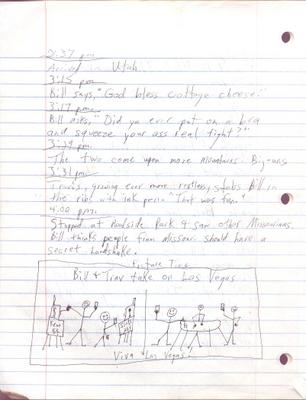 2:37 pm
Arrived in Utah
3:15 pm
Bill says, "God bless cottage cheese."
3:17 pm
Bill asks, "Did ya ever put on a bra
and squeeze your ass real tight?"
The two come upon more mountains. Big-uns
3:31 pm
Travis, growing ever more restless, stabs Bill in
the ribs with ink pen. "That was fun."
4:00 pm.
Stopped at Roadside Park & saw other Missourians.
Bill thinks people from Missouri should have a
secret handshake.
Picture Time
Bill & Trav take on Las Vegas
Viva Las Vegas!